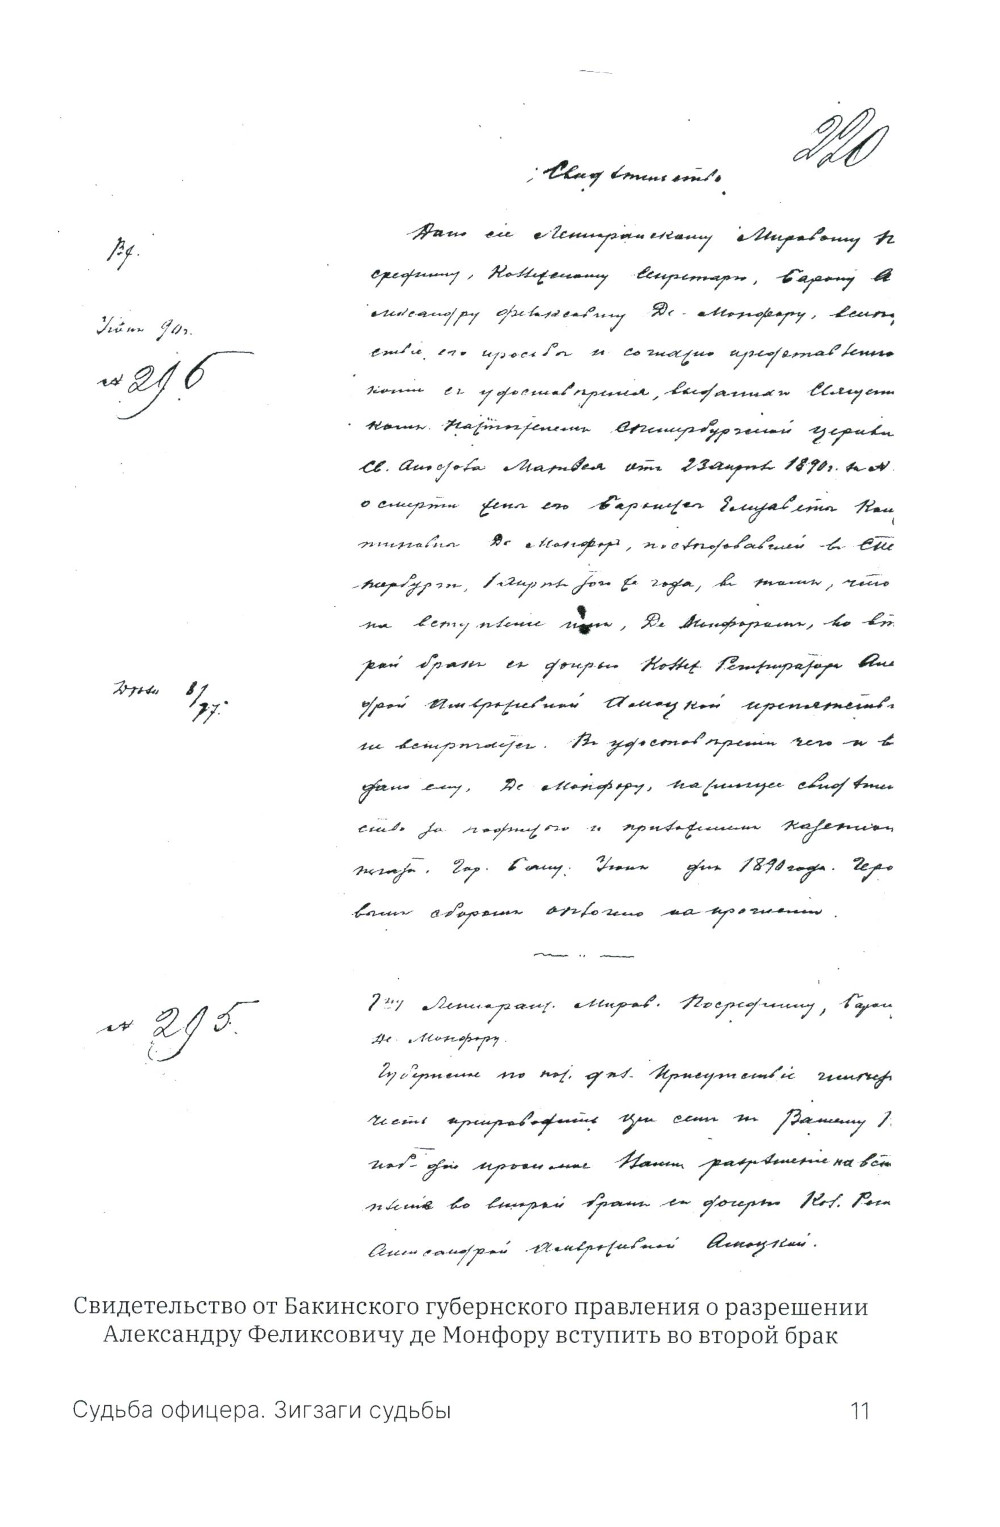 220
Свидѣтельство
Вд.
Дано сіе Ленкоранскому Мировому П
Іюня 90 г.
среднику, Коллежскому Секретарю, Барону А
лександру Феликсовичу Де-Монфору, вслѣд
№ 296
ствіе его просьбы и согласно представленно
копіи съ удостовѣренія, выданнаго Священ
Настоятелемъ С.петербургской церкви
Св. Апостола Матвея отъ 23 апрѣля 1890 г. за №
о смерти жены его Баронессы Елизаветы Кон
тиновны Де-Монфоръ, послѣдовавшей въ СПе
тербургѣ, 1 апрѣля того же года, въ томъ, что
на вступленіе его, Де-Монфора, во вто
рой бракъ съ дочерью Коллеж. Регистратора Алек
дрой Амвросіевной препятствій
не встрѣчается. Въ удостовѣреніе чего и в
дано ему, Де-Монфору, настоящее свидѣтел
ство за подписью и приложеніемъ казенной
печати. Гор. Баку. Іюня дня 1890 года. Гербо
вымъ сборомъ оплочено на прошеніи.
№ 295
Ленкоранск. Миров. Посреднику, Барон
Де-Монфору.
Губернское по пос. дѣл. Присутствіе имѣетъ
честь препроводить при семъ къ Вашему
просимое Вами разрѣшеніе на всту
пленіе во второй бракъ съ дочерью Кол. Рег.
Александрой Амвросіевной
Свидетельство от Бакинского губернского правления о разрешении
Александру Феликсовичу де Монфору вступить во второй брак
Судьба офицера. Зигзаги судьбы
11